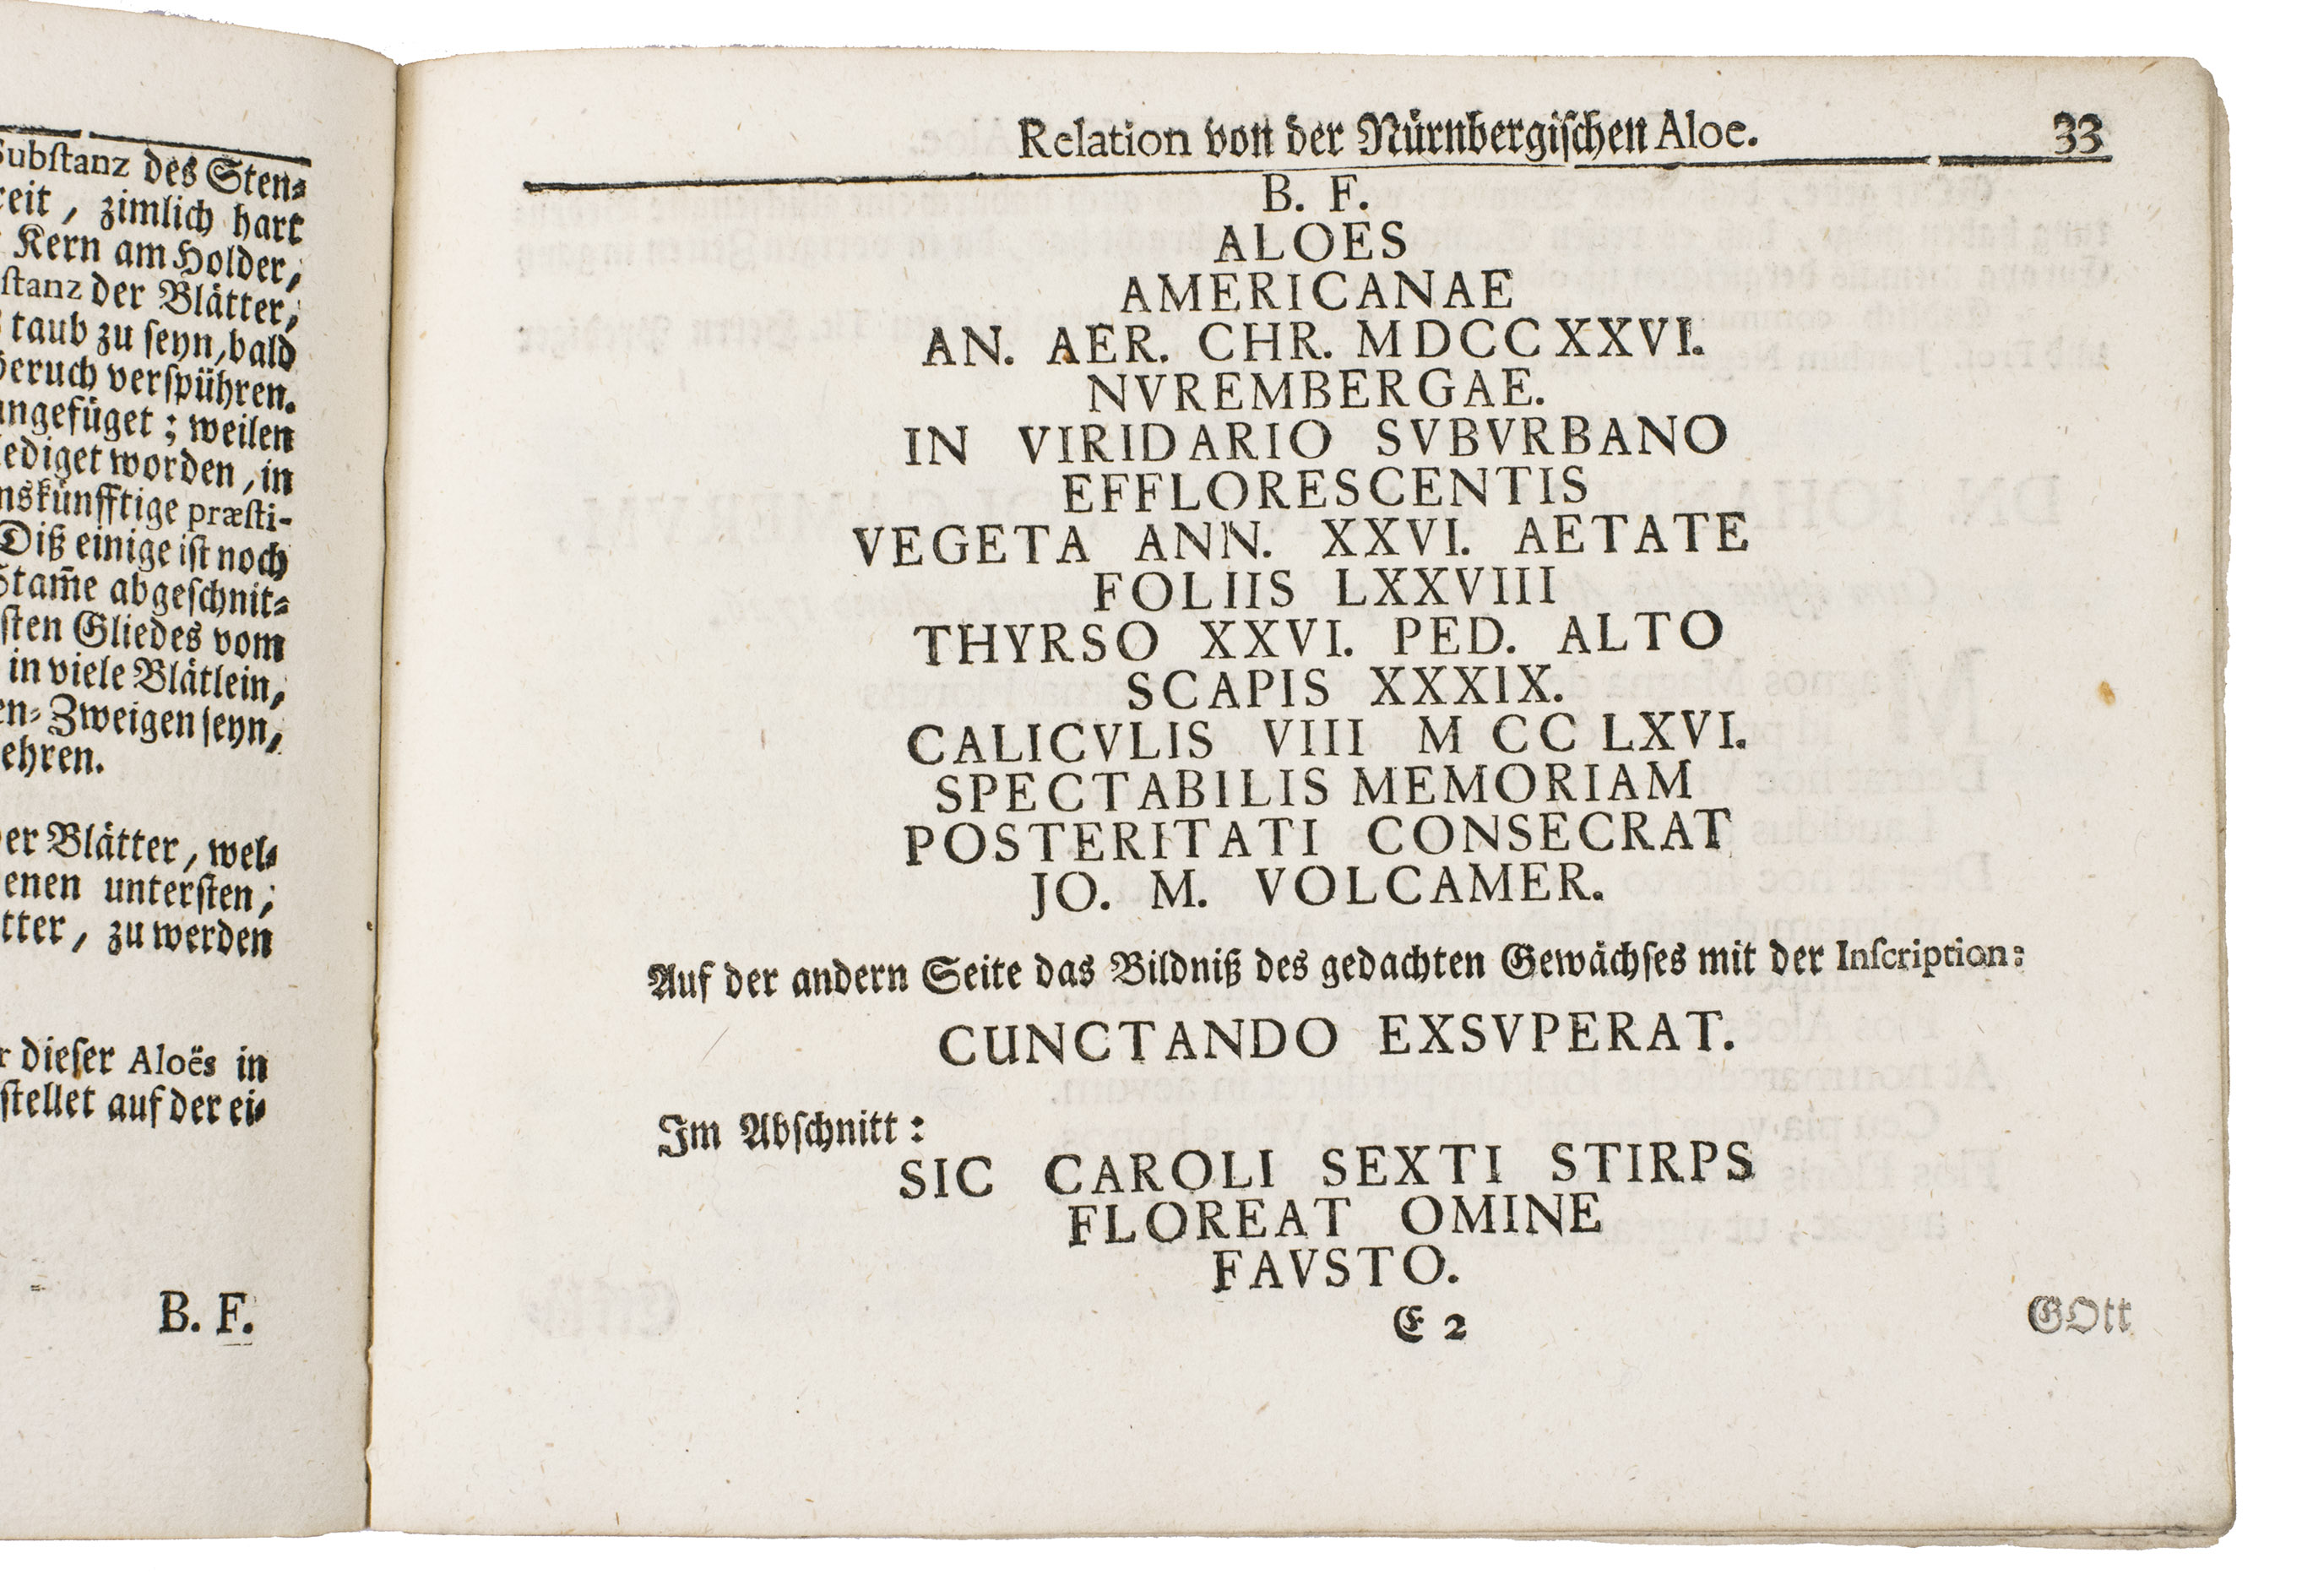 Substanz des Sten⸗
reit, zimlich hart
Kern am Holder,
stanz der Blätter,
taub zu seyn, bald
Geruch verspühren.
angefüget; weilen
lediget worden, in
nskünfftige præsti-
Diß einige ist noch
Stam̅e abgeschnit⸗
sten Gliedes vom
in viele Blätlein,
en⸗Zweigen seyn,
ehren.
er Blätter, wel⸗
enen untersten,
tter, zu werden
r dieser Aloës in
stellet auf der ei⸗
B. F.
Relation von der Nürnbergischen Aloe. 33
B. F.
ALOES
AMERICANAE
AN. AER. CHR. MDCCXXVI.
NVREMBERGAE.
IN VIRIDARIO SVBVRBANO
EFFLORESCENTIS
VEGETA ANN. XXVI. AETATE
FOLIIS LXXVIII
THYRSO XXVI. PED. ALTO
SCAPIS XXXIX.
CALICVLIS VIII M CC LXVI.
SPECTABILIS MEMORIAM
POSTERITATI CONSECRAT
JO. M. VOLCAMER.
Auf der andern Seite das Bildniß des gedachten Gewächses mit der Inscription:
CUNCTANDO EXSVPERAT.
Im Abschnitt:
SIC CAROLI SEXTI STIRPS
FLOREAT OMINE
FAVSTO.
E 2 GOtt